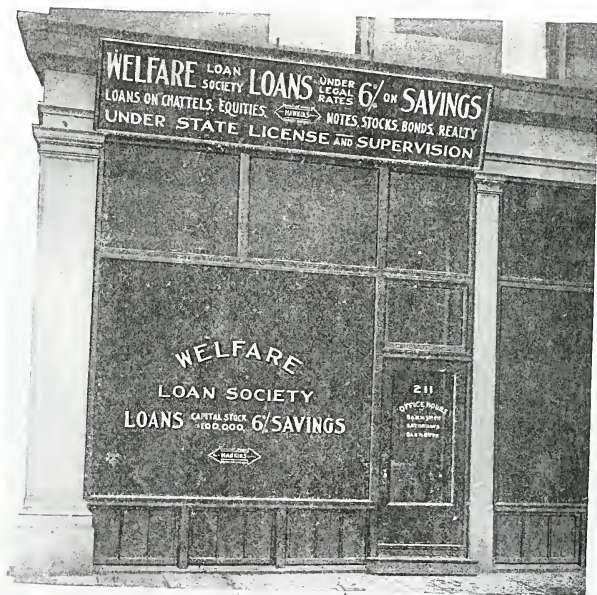 WELFARE LOAN SOCIETY LOANS UNDER LEGAL RATES 6% ON SAVINGS
LOANS ON CHATTELS, EQUITIES, HAWKINS NOTES, STOCKS, BONDS, REALTY
UNDER STATE LICENSE AND SUPERVISION
WELFARE
LOAN SOCIETY
LOANS CAPITAL STOCK $100,000. 6% SAVINGS
HAWKINS
211
OFFICE HOURS
SATURDAYS